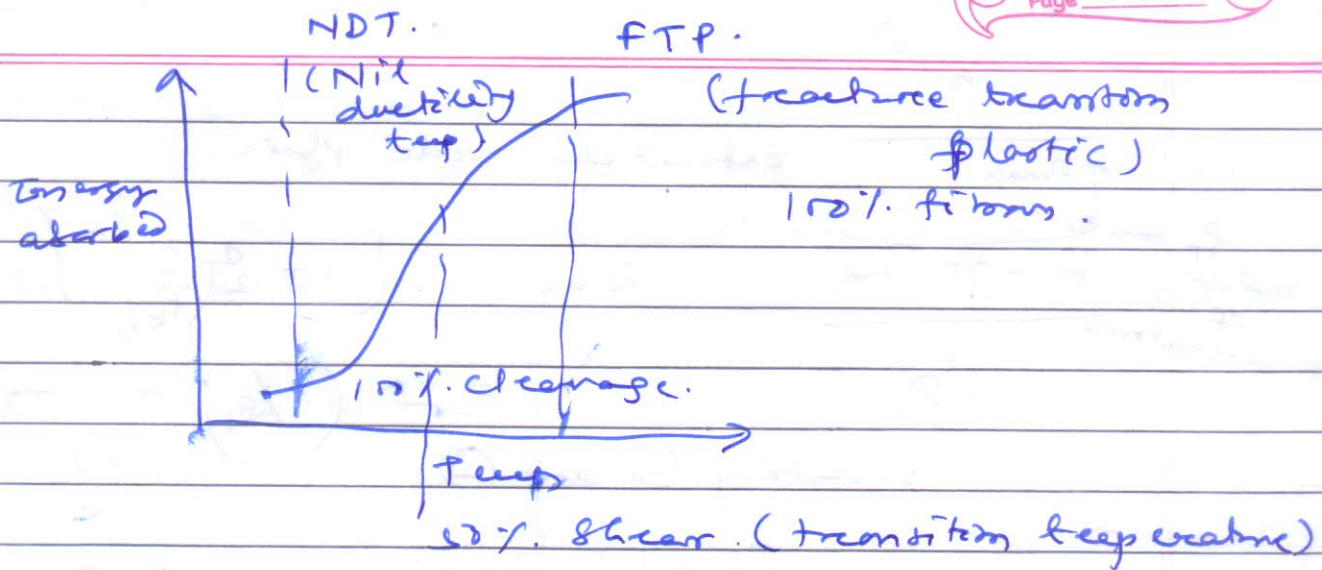 Page
NDT.
FTP.
(Nil
ductility
temp)
(fracture transition
plastic)
100% fibrous.
Energy
absorbed
100%. cleavage.
Temp
50%. Shear. (transition temperature)